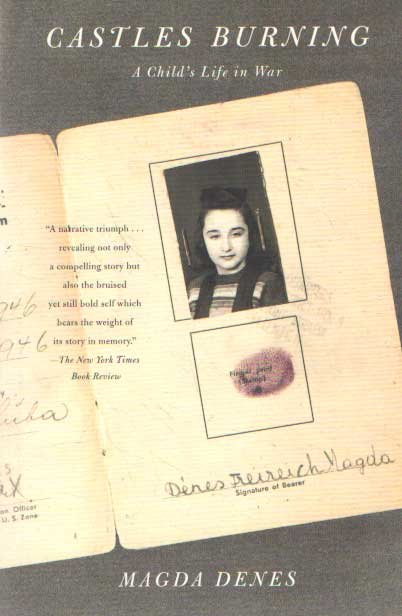 CASTLES BURNING
A Child's Life in War
"A narrative triumph . . .
revealing not only
a compelling story but
also the bruised
yet still bold self which
bears the weight of
its story in memory."
—The New York Times
Book Review
1946
on Officer
U. S. Zone
Dénes Freireich Magda
Signature of Bearer
MAGDA DENES